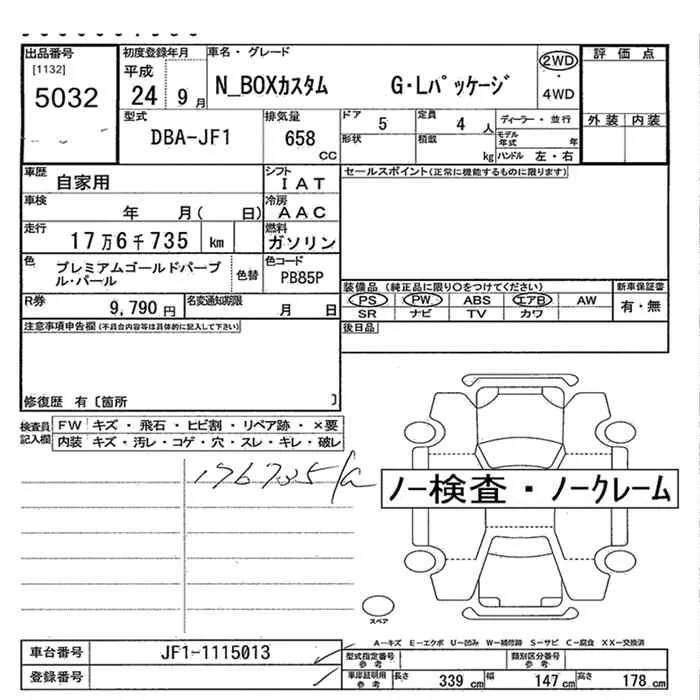 出品番号
[1132]
5032
初度登録年月
平成
24 9月
車名・グレード
N_BOXカスタム G・Lパッケージ
2WD
・
4WD
評価点
外装 内装
型式
DBA-JF1
排気量
658
CC
ドア 5
定員 4 人
形状
積載 kg
ディーラー・並行
モデル年式 年
ハンドル 左・右
車歴
自家用
シフト
IAT
車検
年 月( 日)
冷房
AAC
走行
17万6千735 km
燃料
ガソリン
色
プレミアムゴールドパープル・パール
色替
色コード
PB85P
R券
9,790 円
名変通知期限
月 日
セールスポイント(正常に機能するものに限ります)
装備品 (純正品に限り○をつけてください)
PS PW ABS エアB AW
SR ナビ TV カワ
新車保証書
有・無
後日品
注意事項申告欄(不具合内容等は具体的に記入して下さい)
修復歴 有〔箇所 〕
検査員記入欄
FW キズ・飛石・ヒビ割・リペア跡・×要
内装 キズ・汚レ・コゲ・穴・スレ・キレ・破レ
176735
ノー検査・ノークレーム
スペア
A-キズ E-エクボ U-凹み W-補修跡 S-サビ C-腐食 XX-交換済
車台番号
JF1-1115013
登録番号
型式指定番号
参考
類別区分番号
参考
車庫証明用
参考
長さ 339 cm 幅 147 cm 高さ 178 cm